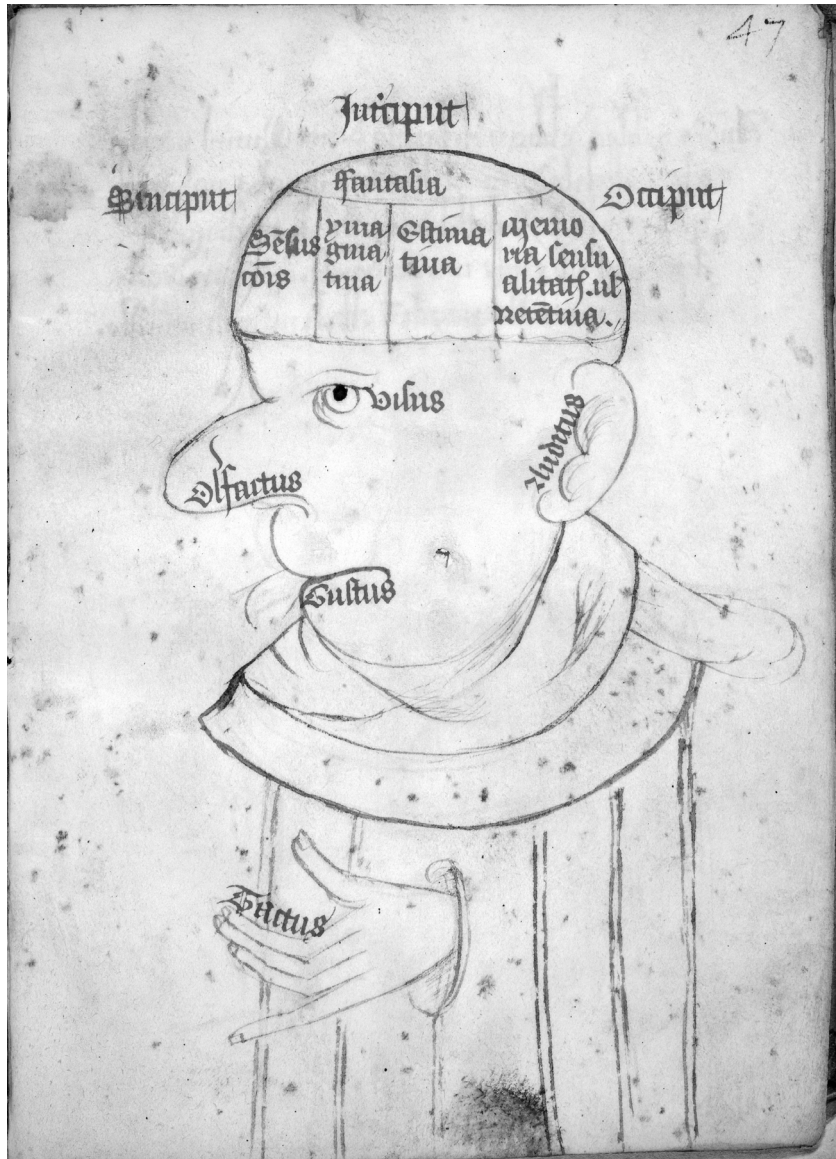 47
Inciput
Sinciput
Occiput
ffantasia
Sēsus
cōis
ymagi
gina
tiva
Estima
tiva
memo
ria sensu
alitatis.
Retētiva.
visus
Auditus
Olfactus
Gustus
Tactus